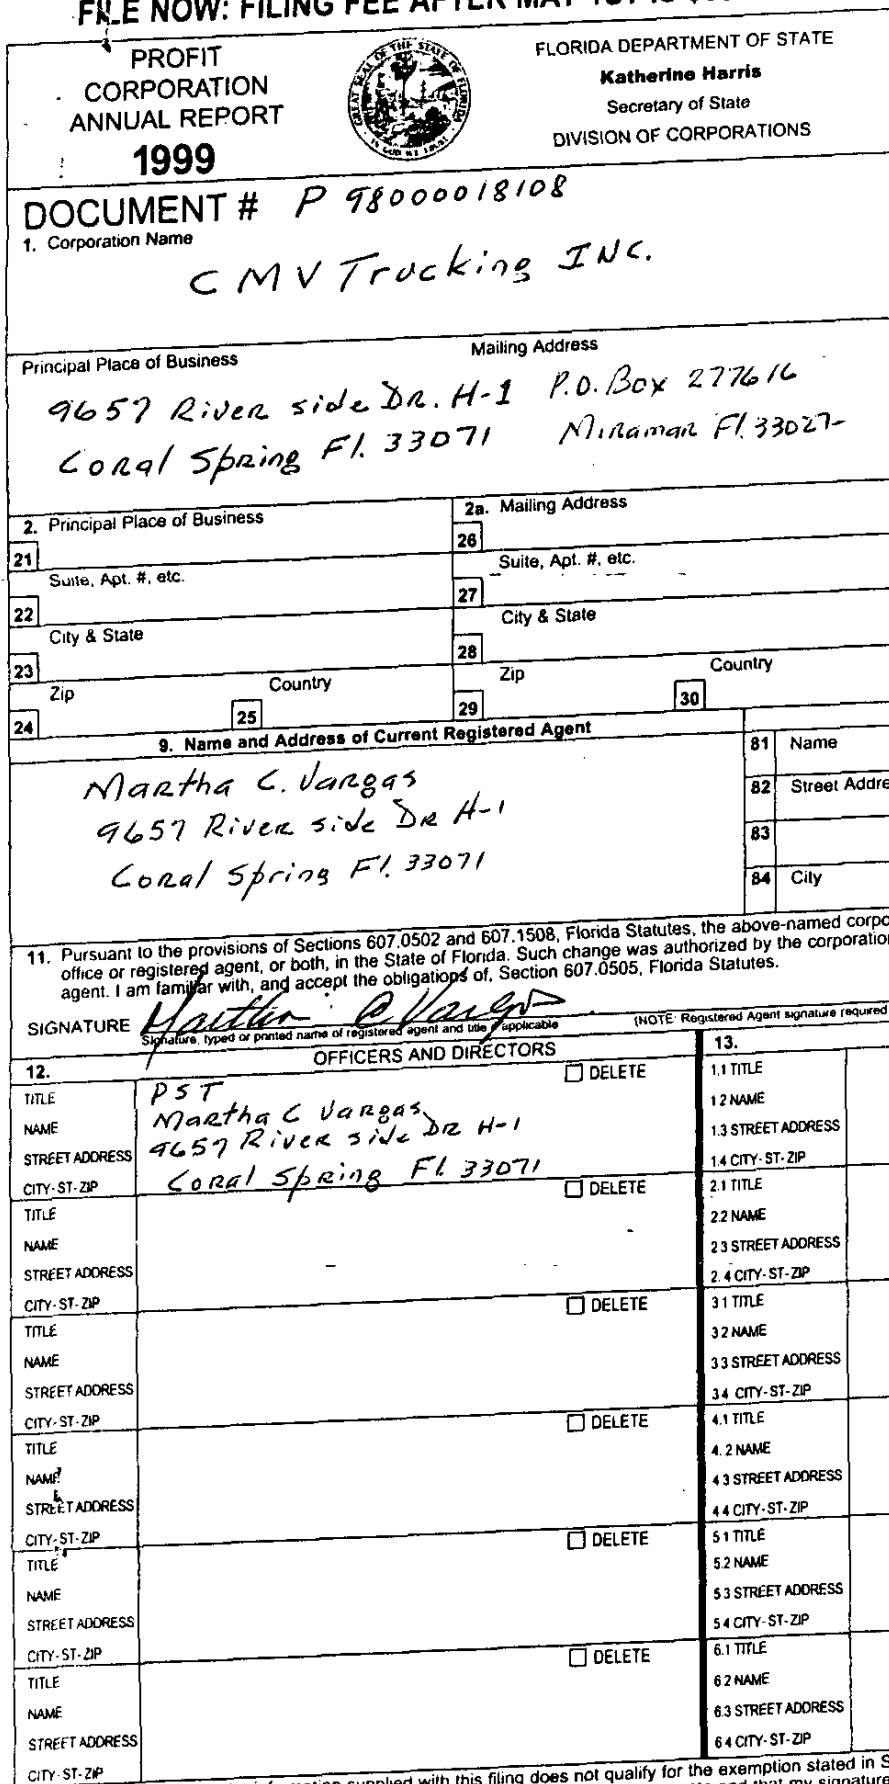 FILE NOW: FILING FEE AFTER MAY 1ST IS
PROFIT
CORPORATION
ANNUAL REPORT
1999
GREAT SEAL OF THE STATE OF FLORIDA
IN GOD WE TRUST
FLORIDA DEPARTMENT OF STATE
Katherine Harris
Secretary of State
DIVISION OF CORPORATIONS
DOCUMENT # P 98000018108
1. Corporation Name
CMV Trucking INC.
Principal Place of Business
Mailing Address
9657 River side DR. H-1
P.O. Box 277616
Coral Spring Fl. 33071
Miramar Fl. 33027-
2. Principal Place of Business
2a. Mailing Address
21
26
Suite, Apt. #, etc.
Suite, Apt. #, etc.
22
27
City & State
City & State
23
28
Zip
Country
Zip
Country
24
25
29
30
9. Name and Address of Current Registered Agent
Martha C. Vargas
9657 River side DR H-1
Coral Spring Fl. 33071
81 Name
82 Street Addre
83
84 City
11. Pursuant to the provisions of Sections 607.0502 and 607.1508, Florida Statutes, the above-named corpo
office or registered agent, or both, in the State of Florida. Such change was authorized by the corporation
agent. I am familiar with, and accept the obligations of, Section 607.0505, Florida Statutes.
SIGNATURE Martha C Vargas
Signature, typed or printed name of registered agent and title if applicable
(NOTE: Registered Agent signature required
12. OFFICERS AND DIRECTORS
13.
TITLE PST DELETE
NAME Martha C Vargas
STREET ADDRESS 9657 River side DR H-1
CITY-ST-ZIP Coral Spring Fl. 33071
1.1 TITLE
1 2 NAME
1.3 STREET ADDRESS
1.4 CITY-ST-ZIP
TITLE DELETE
NAME
STREET ADDRESS
CITY-ST-ZIP
2.1 TITLE
2.2 NAME
2 3 STREET ADDRESS
2.4 CITY-ST-ZIP
TITLE DELETE
NAME
STREET ADDRESS
CITY-ST-ZIP
3 1 TITLE
3 2 NAME
3 3 STREET ADDRESS
3 4 CITY-ST-ZIP
TITLE DELETE
NAME
STREET ADDRESS
CITY-ST-ZIP
4.1 TITLE
4.2 NAME
4 3 STREET ADDRESS
4 4 CITY-ST-ZIP
TITLE DELETE
NAME
STREET ADDRESS
CITY-ST-ZIP
5 1 TITLE
5.2 NAME
5 3 STREET ADDRESS
5 4 CITY-ST-ZIP
TITLE DELETE
NAME
STREET ADDRESS
CITY-ST-ZIP
6.1 TITLE
6 2 NAME
6.3 STREET ADDRESS
6 4 CITY-ST-ZIP
supplied with this filing does not qualify for the exemption stated in S
and that my signature